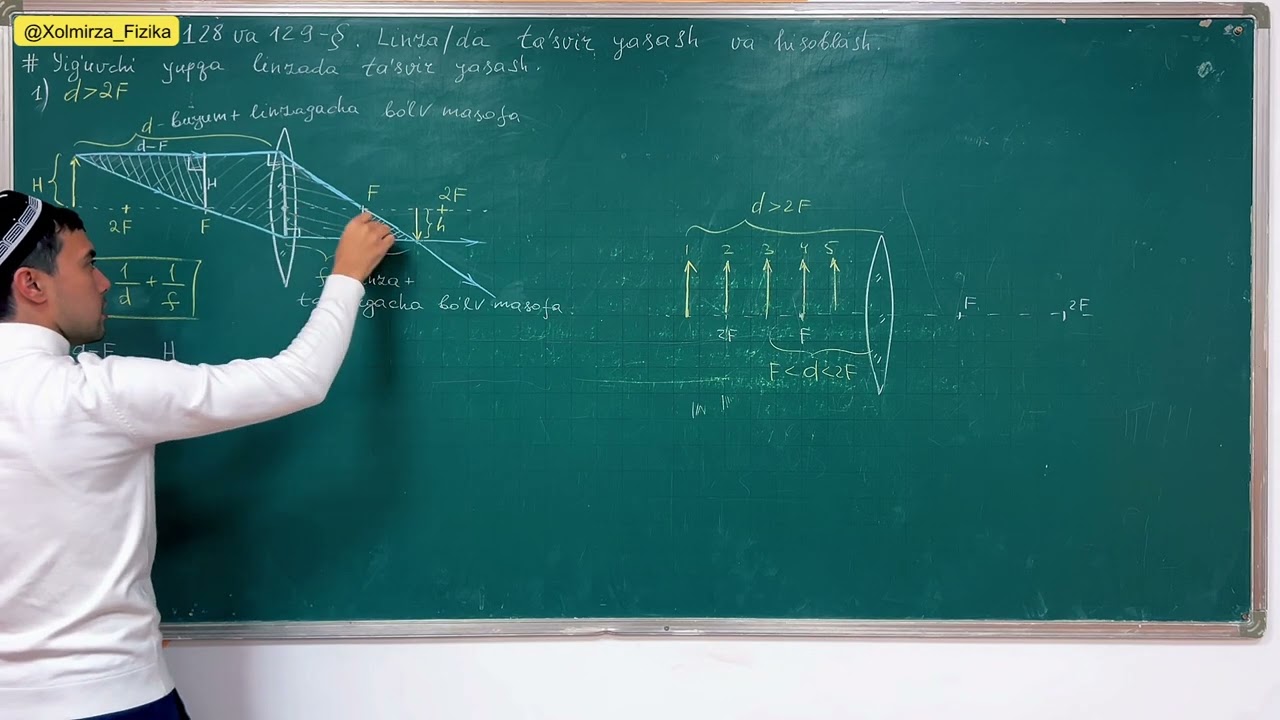 @Xolmirza_Fizika
128 va 129-§. Linza/da ta'svir yasash va hisoblash.
# Yig'uvchi yupqa linzada ta'svir yasash.
1) d>2F
d - buyum + linzagacha bo'lv masofa
d-F
H
H
F
2F
2F
F
h
1/d + 1/f
f
linza +
bo'lv masofa.
F
H
d>2F
1 2 3 4 5
F
2F
2F
F
F<d<2F